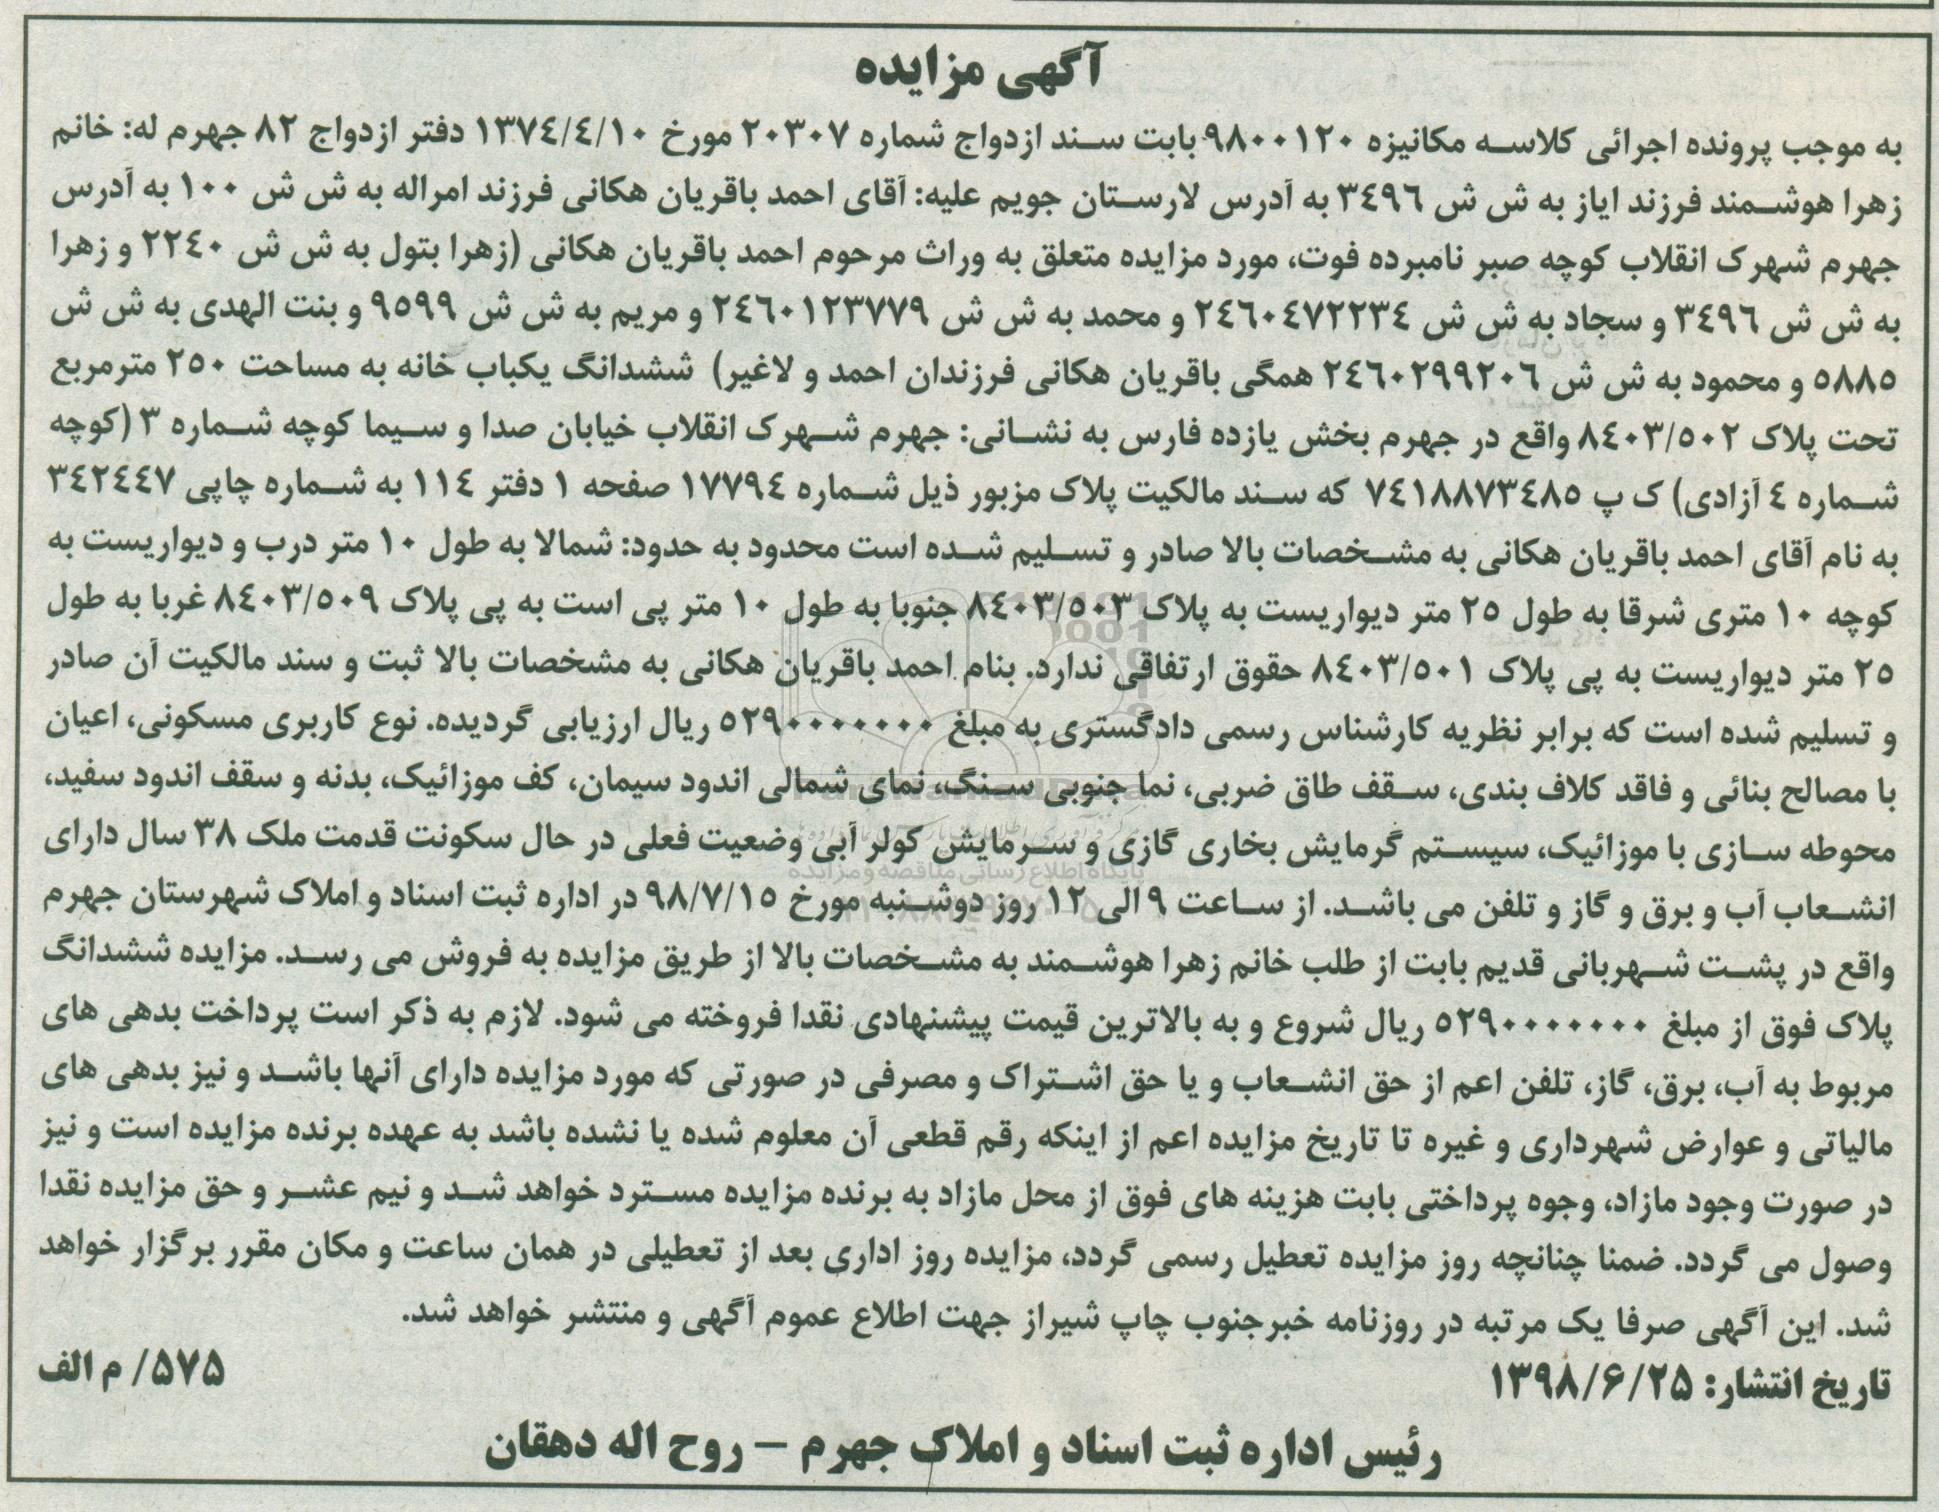 آگهی مزایده
به موجب پرونده اجرائی کلاسه مکانیزه ۹۸۰۰۱۲۰ بابت سند ازدواج شماره ۲۰۳۰۷ مورخ ۱۳۷٤/٤/۱۰ دفتر ازدواج ۸۲ جهرم له: خانم
زهرا هوشمند فرزند ایاز به ش ش ۳٤۹٦ به آدرس لارستان جویم علیه: آقای احمد باقریان هکانی فرزند امراله به ش ش ۱۰۰ به آدرس
جهرم شهرک انقلاب کوچه صبر نامبرده فوت، مورد مزایده متعلق به وراث مرحوم احمد باقریان هکانی (زهرا بتول به ش ش ۲۲٤۰ و زهرا
به ش ش ۳٤۹٦ و سجاد به ش ش ۲٤٦۰٤۷۲۲۳٤ و محمد به ش ش ۲٤٦۰۱۲۳۷۷۹ و مریم به ش ش ۹٥۹۹ و بنت الهدی به ش ش
٥۸۸٥ و محمود به ش ش ۲٤٦۰۲۹۹۲۰٦ همگی باقریان هکانی فرزندان احمد و لاغیر) ششدانگ یکباب خانه به مساحت ۲٥۰ مترمربع
تحت پلاک ۸٤۰۳/٥۰۲ واقع در جهرم بخش یازده فارس به نشانی: جهرم شهرک انقلاب خیابان صدا و سیما کوچه شماره ۳ (کوچه
شماره ٤ آزادی) ک پ ۷٤۱۸۸۷۳٤۸٥ که سند مالکیت پلاک مزبور ذیل شماره ۱۷۷۹٤ صفحه ۱ دفتر ۱۱٤ به شماره چاپی ۳٤۲٤٤۷
به نام آقای احمد باقریان هکانی به مشخصات بالا صادر و تسلیم شده است محدود به حدود: شمالا به طول ۱۰ متر درب و دیواریست به
کوچه ۱۰ متری شرقا به طول ۲٥ متر دیواریست به پلاک ۸٤۰۳/٥۰۳ جنوبا به طول ۱۰ متر پی است به پی پلاک ۸٤۰۳/٥۰۹ غربا به طول
۲٥ متر دیواریست به پی پلاک ۸٤۰۳/٥۰۱ حقوق ارتفاقی ندارد. بنام احمد باقریان هکانی به مشخصات بالا ثبت و سند مالکیت آن صادر
و تسلیم شده است که برابر نظریه کارشناس رسمی دادگستری به مبلغ ٥۲۹۰۰۰۰۰۰۰ ریال ارزیابی گردیده. نوع کاربری مسکونی، اعیان
با مصالح بنائی و فاقد کلاف بندی، سقف طاق ضربی، نما جنوبی سنگ، نمای شمالی اندود سیمان، کف موزائیک، بدنه و سقف اندود سفید،
محوطه سازی با موزائیک، سیستم گرمایش بخاری گازی و سرمایش کولر آبی وضعیت فعلی در حال سکونت قدمت ملک ۳۸ سال دارای
انشعاب آب و برق و گاز و تلفن می باشد. از ساعت ۹ الی ۱۲ روز دوشنبه مورخ ۹۸/۷/۱٥ در اداره ثبت اسناد و املاک شهرستان جهرم
واقع در پشت شهربانی قدیم بابت از طلب خانم زهرا هوشمند به مشخصات بالا از طریق مزایده به فروش می رسد. مزایده ششدانگ
پلاک فوق از مبلغ ٥۲۹۰۰۰۰۰۰۰ ریال شروع و به بالاترین قیمت پیشنهادی نقدا فروخته می شود. لازم به ذکر است پرداخت بدهی های
مربوط به آب، برق، گاز، تلفن اعم از حق انشعاب و یا حق اشتراک و مصرفی در صورتی که مورد مزایده دارای آنها باشد و نیز بدهی های
مالیاتی و عوارض شهرداری و غیره تا تاریخ مزایده اعم از اینکه رقم قطعی آن معلوم شده یا نشده باشد به عهده برنده مزایده است و نیز
در صورت وجود مازاد، وجوه پرداختی بابت هزینه های فوق از محل مازاد به برنده مزایده مسترد خواهد شد و نیم عشر و حق مزایده نقدا
وصول می گردد. ضمنا چنانچه روز مزایده تعطیل رسمی گردد، مزایده روز اداری بعد از تعطیلی در همان ساعت و مکان مقرر برگزار خواهد
شد. این آگهی صرفا یک مرتبه در روزنامه خبرجنوب چاپ شیراز جهت اطلاع عموم آگهی و منتشر خواهد شد.
تاریخ انتشار: ۱۳۹۸/۶/۲۵
۵۷۵/ م الف
رئیس اداره ثبت اسناد و املاک جهرم – روح اله دهقان